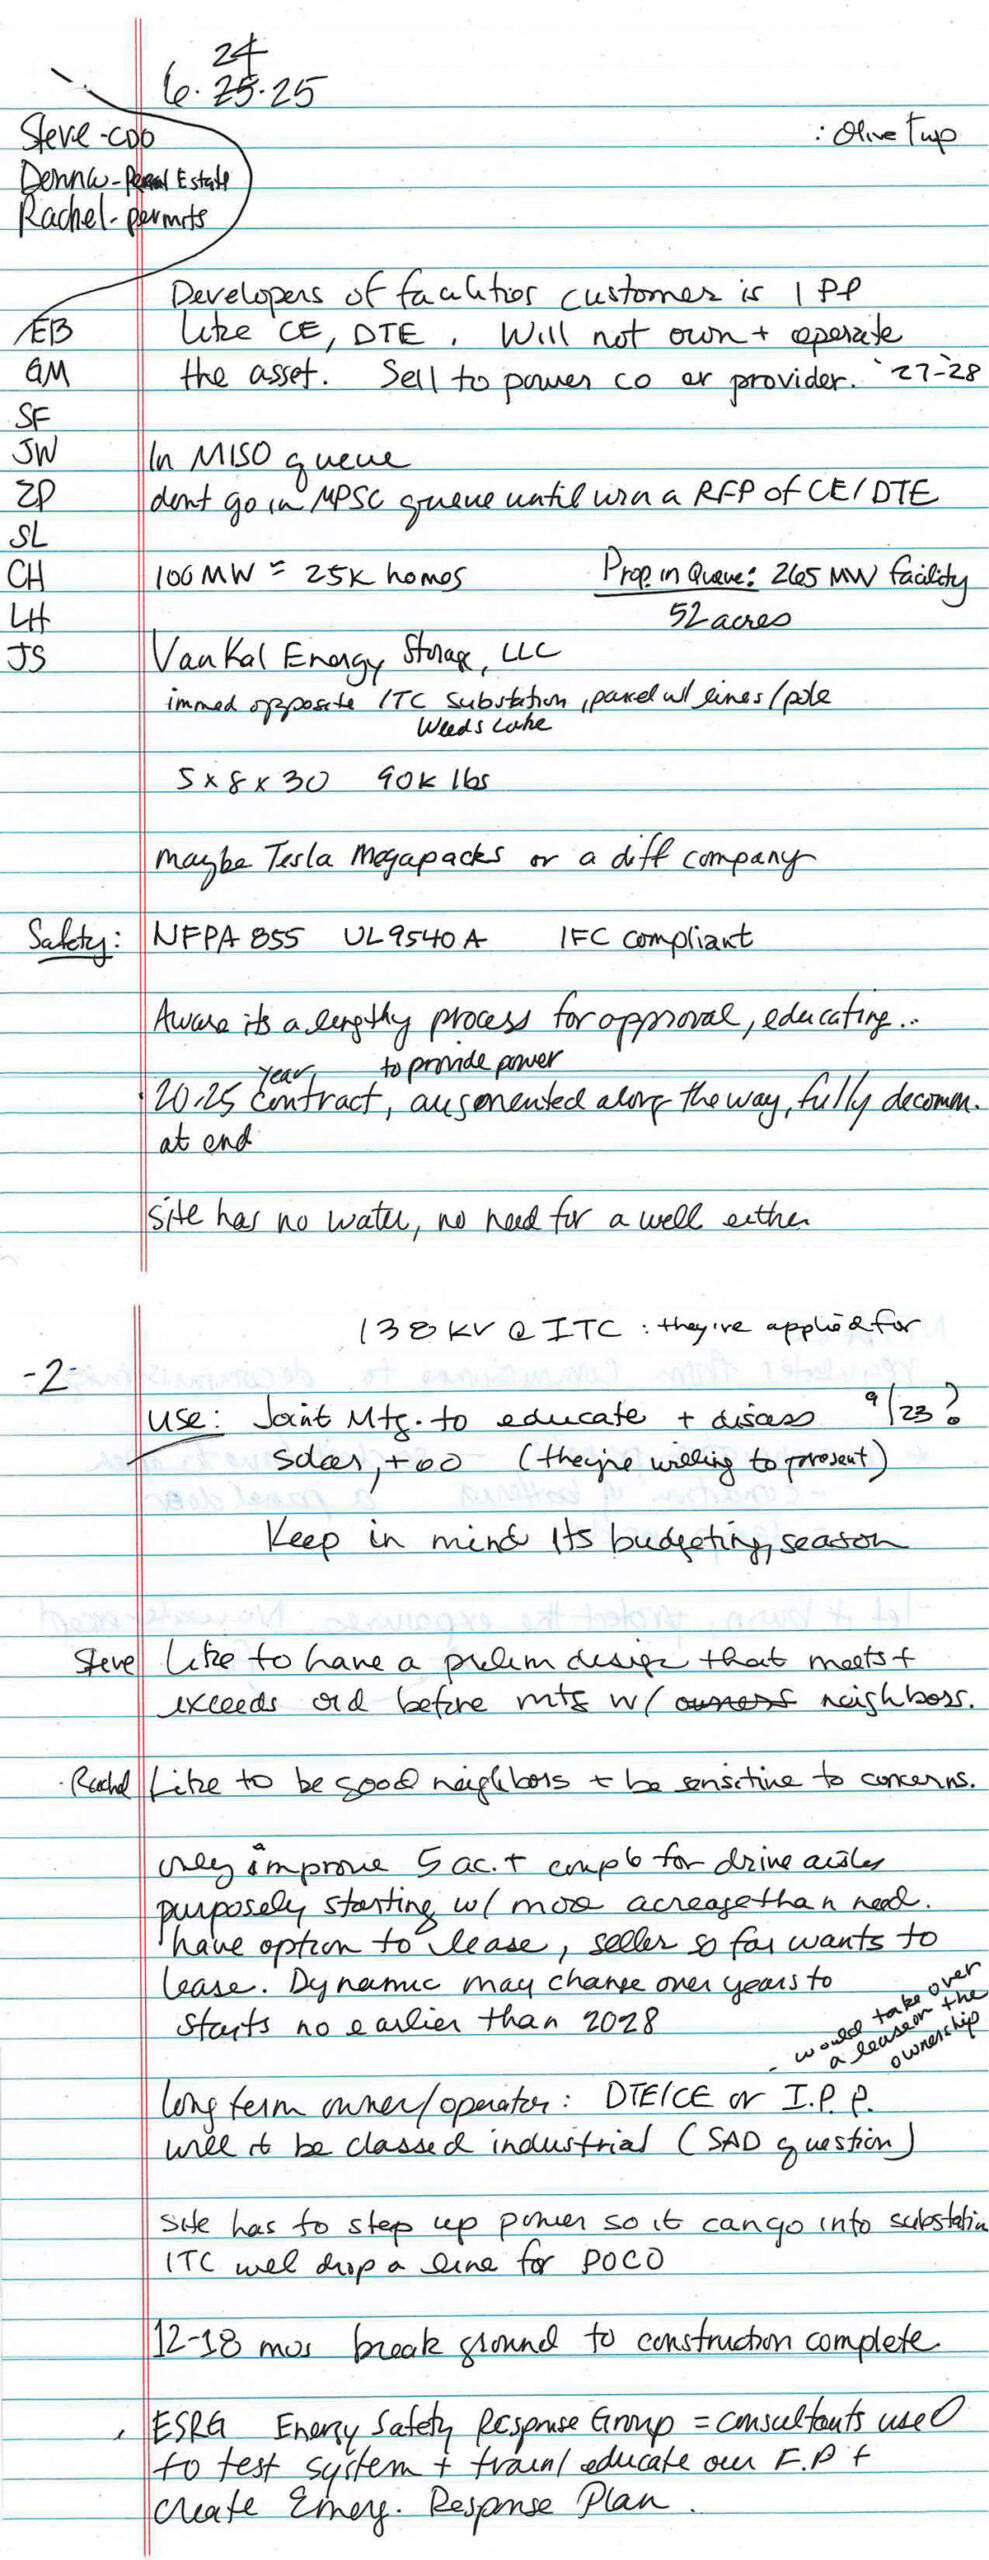 24
6.25.25
Steve-COO
Donna-Real Estate
Rachel-permits
: Olive Twp
Developers of facilities customer is IPP
EB like CE, DTE. Will not own + operate
GM the asset. Sell to power co or provider. '27-'28
SF
JW In MISO queue
ZP dont go in MPSC queue until win a RFP of CE/DTE
SL
CH 100 MW = 25K homes Prop. in Queue: 265 MW facility
LH 52 acres
JS Van Kal Energy Storage, LLC
immed opposite ITC substation, parcel w/ lines/pole
Weeds Lake
5 x 8 x 30 90K lbs
maybe Tesla Megapacks or a diff company
Safety: NFPA 855 UL9540A IFC compliant
Aware its a lengthy process for approval, educating...
year to provide power
20-25 contract, augmented along the way, fully decomm.
at end
site has no water, no need for a well either
138 KV @ ITC : they've applied for
-2-
use: Joint Mtg. to educate + discuss 9/23?
solar, too (they're willing to present)
Keep in mind its budgeting season
Steve Like to have a prelim design that meets +
exceeds ord before mtg w/ owners neighbors.
Rachel Like to be good neighbors + be sensitive to concerns.
only improve 5 ac. + couple for drive aisles
purposely starting w/ more acreage than need.
have option to lease, seller so far wants to
lease. Dynamic may change over years to
starts no earlier than 2028
- would take over
a lease or the
ownership
long term owner/operator: DTE/CE or I.P.P.
will it be classed industrial (SAD question)
site has to step up power so it can go into substation
ITC will drop a line for POCO
12-18 mos break ground to construction complete
ESRG Energy Safety Response Group = consultants used
to test system + train/educate our F.D +
create Emerg. Response Plan.